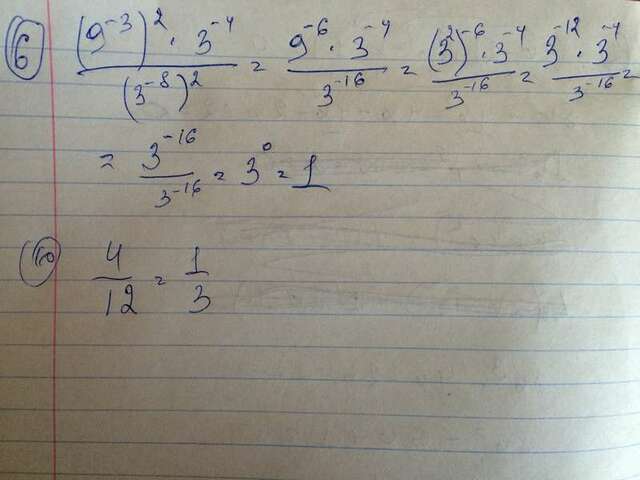 6 (9⁻³)² · 3⁻⁴ / (3⁻⁸)² = 9⁻⁶ · 3⁻⁴ / 3⁻¹⁶ = (3²)⁻⁶ · 3⁻⁴ / 3⁻¹⁶ = 3⁻¹² · 3⁻⁴ / 3⁻¹⁶ =
= 3⁻¹⁶ / 3⁻¹⁶ = 3⁰ = 1
10 4/12 = 1/3